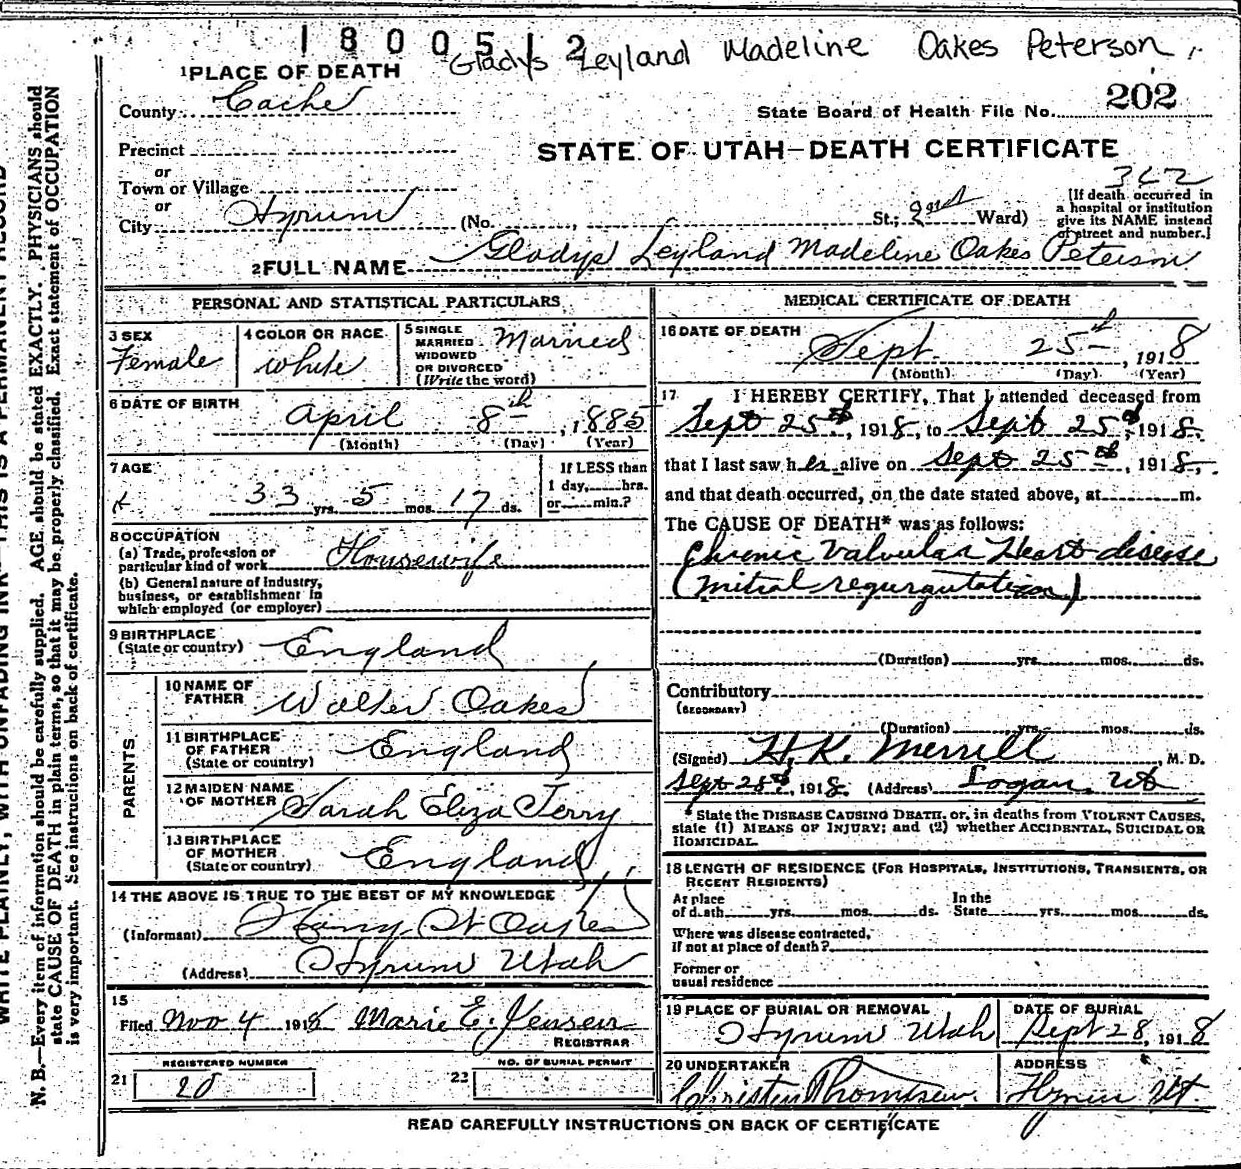 1800512 Gladys Leyland Madeline Oakes Peterson
1 PLACE OF DEATH
County Cache
State Board of Health File No. 202
Precinct
or
STATE OF UTAH—DEATH CERTIFICATE
Town or Village
or
362
City Hyrum (No. , St.; 2nd Ward)
[If death occurred in
a hospital or institution
give its NAME instead
of street and number.]
2 FULL NAME Gladys Leyland Madeline Oakes Peterson
PERSONAL AND STATISTICAL PARTICULARS
3 SEX
Female
4 COLOR OR RACE
White
5 SINGLE
MARRIED
WIDOWED
OR DIVORCED
(Write the word)
Married
6 DATE OF BIRTH
April 8th, 1885
(Month) (Day) (Year)
7 AGE
33 yrs. 5 mos. 17 ds.
If LESS than
1 day, hrs.
or min.?
8 OCCUPATION
(a) Trade, profession or
particular kind of work Housewife
(b) General nature of industry,
business, or establishment in
which employed (or employer)
9 BIRTHPLACE
(State or country) England
PARENTS
10 NAME OF
FATHER Walter Oakes
11 BIRTHPLACE
OF FATHER
(State or country) England
12 MAIDEN NAME
OF MOTHER Sarah Eliza Terry
13 BIRTHPLACE
OF MOTHER
(State or country) England
14 THE ABOVE IS TRUE TO THE BEST OF MY KNOWLEDGE
(Informant) Harry W Oakes
(Address) Hyrum Utah
15
Filed Nov 4 1918 Marie E. Jensen
REGISTRAR
REGISTERED NUMBER
21 20
NO. OF BURIAL PERMIT
22
MEDICAL CERTIFICATE OF DEATH
16 DATE OF DEATH
Sept. 25th, 1918
(Month) (Day) (Year)
17 I HEREBY CERTIFY, That I attended deceased from
Sept 25th, 1918, to Sept 25th, 1918,
that I last saw her alive on Sept 25th, 1918,
and that death occurred, on the date stated above, at m.
The CAUSE OF DEATH* was as follows:
Chronic Valvular Heart disease
(mitral regurgutation)
(Duration) yrs. mos. ds.
Contributory
(SECONDARY)
(Duration) yrs. mos. ds.
(Signed) H. K. Merrill M. D.
Sept 28th, 1918. (Address) Logan, Ut
* State the DISEASE CAUSING DEATH, or, in deaths from VIOLENT CAUSES,
state (1) MEANS OF INJURY; and (2) whether ACCIDENTAL, SUICIDAL OR
HOMICIDAL.
18 LENGTH OF RESIDENCE (FOR HOSPITALS, INSTITUTIONS, TRANSIENTS, OR
RECENT RESIDENTS)
At place
of death yrs. mos. ds.
In the
State yrs. mos. ds.
Where was disease contracted,
If not at place of death?
Former or
usual residence
19 PLACE OF BURIAL OR REMOVAL
Hyrum Utah
DATE OF BURIAL
Sept 28, 1918
20 UNDERTAKER
Christen Thomsen
ADDRESS
Hyrum Ut.
READ CAREFULLY INSTRUCTIONS ON BACK OF CERTIFICATE
WRITE PLAINLY, WITH UNFADING INK—THIS IS A PERMANENT RECORD
N. B.—Every item of information should be carefully supplied. AGE should be stated EXACTLY. PHYSICIANS should
state CAUSE OF DEATH in plain terms, so that it may be properly classified. Exact statement of OCCUPATION
is very important. See instructions on back of certificate.